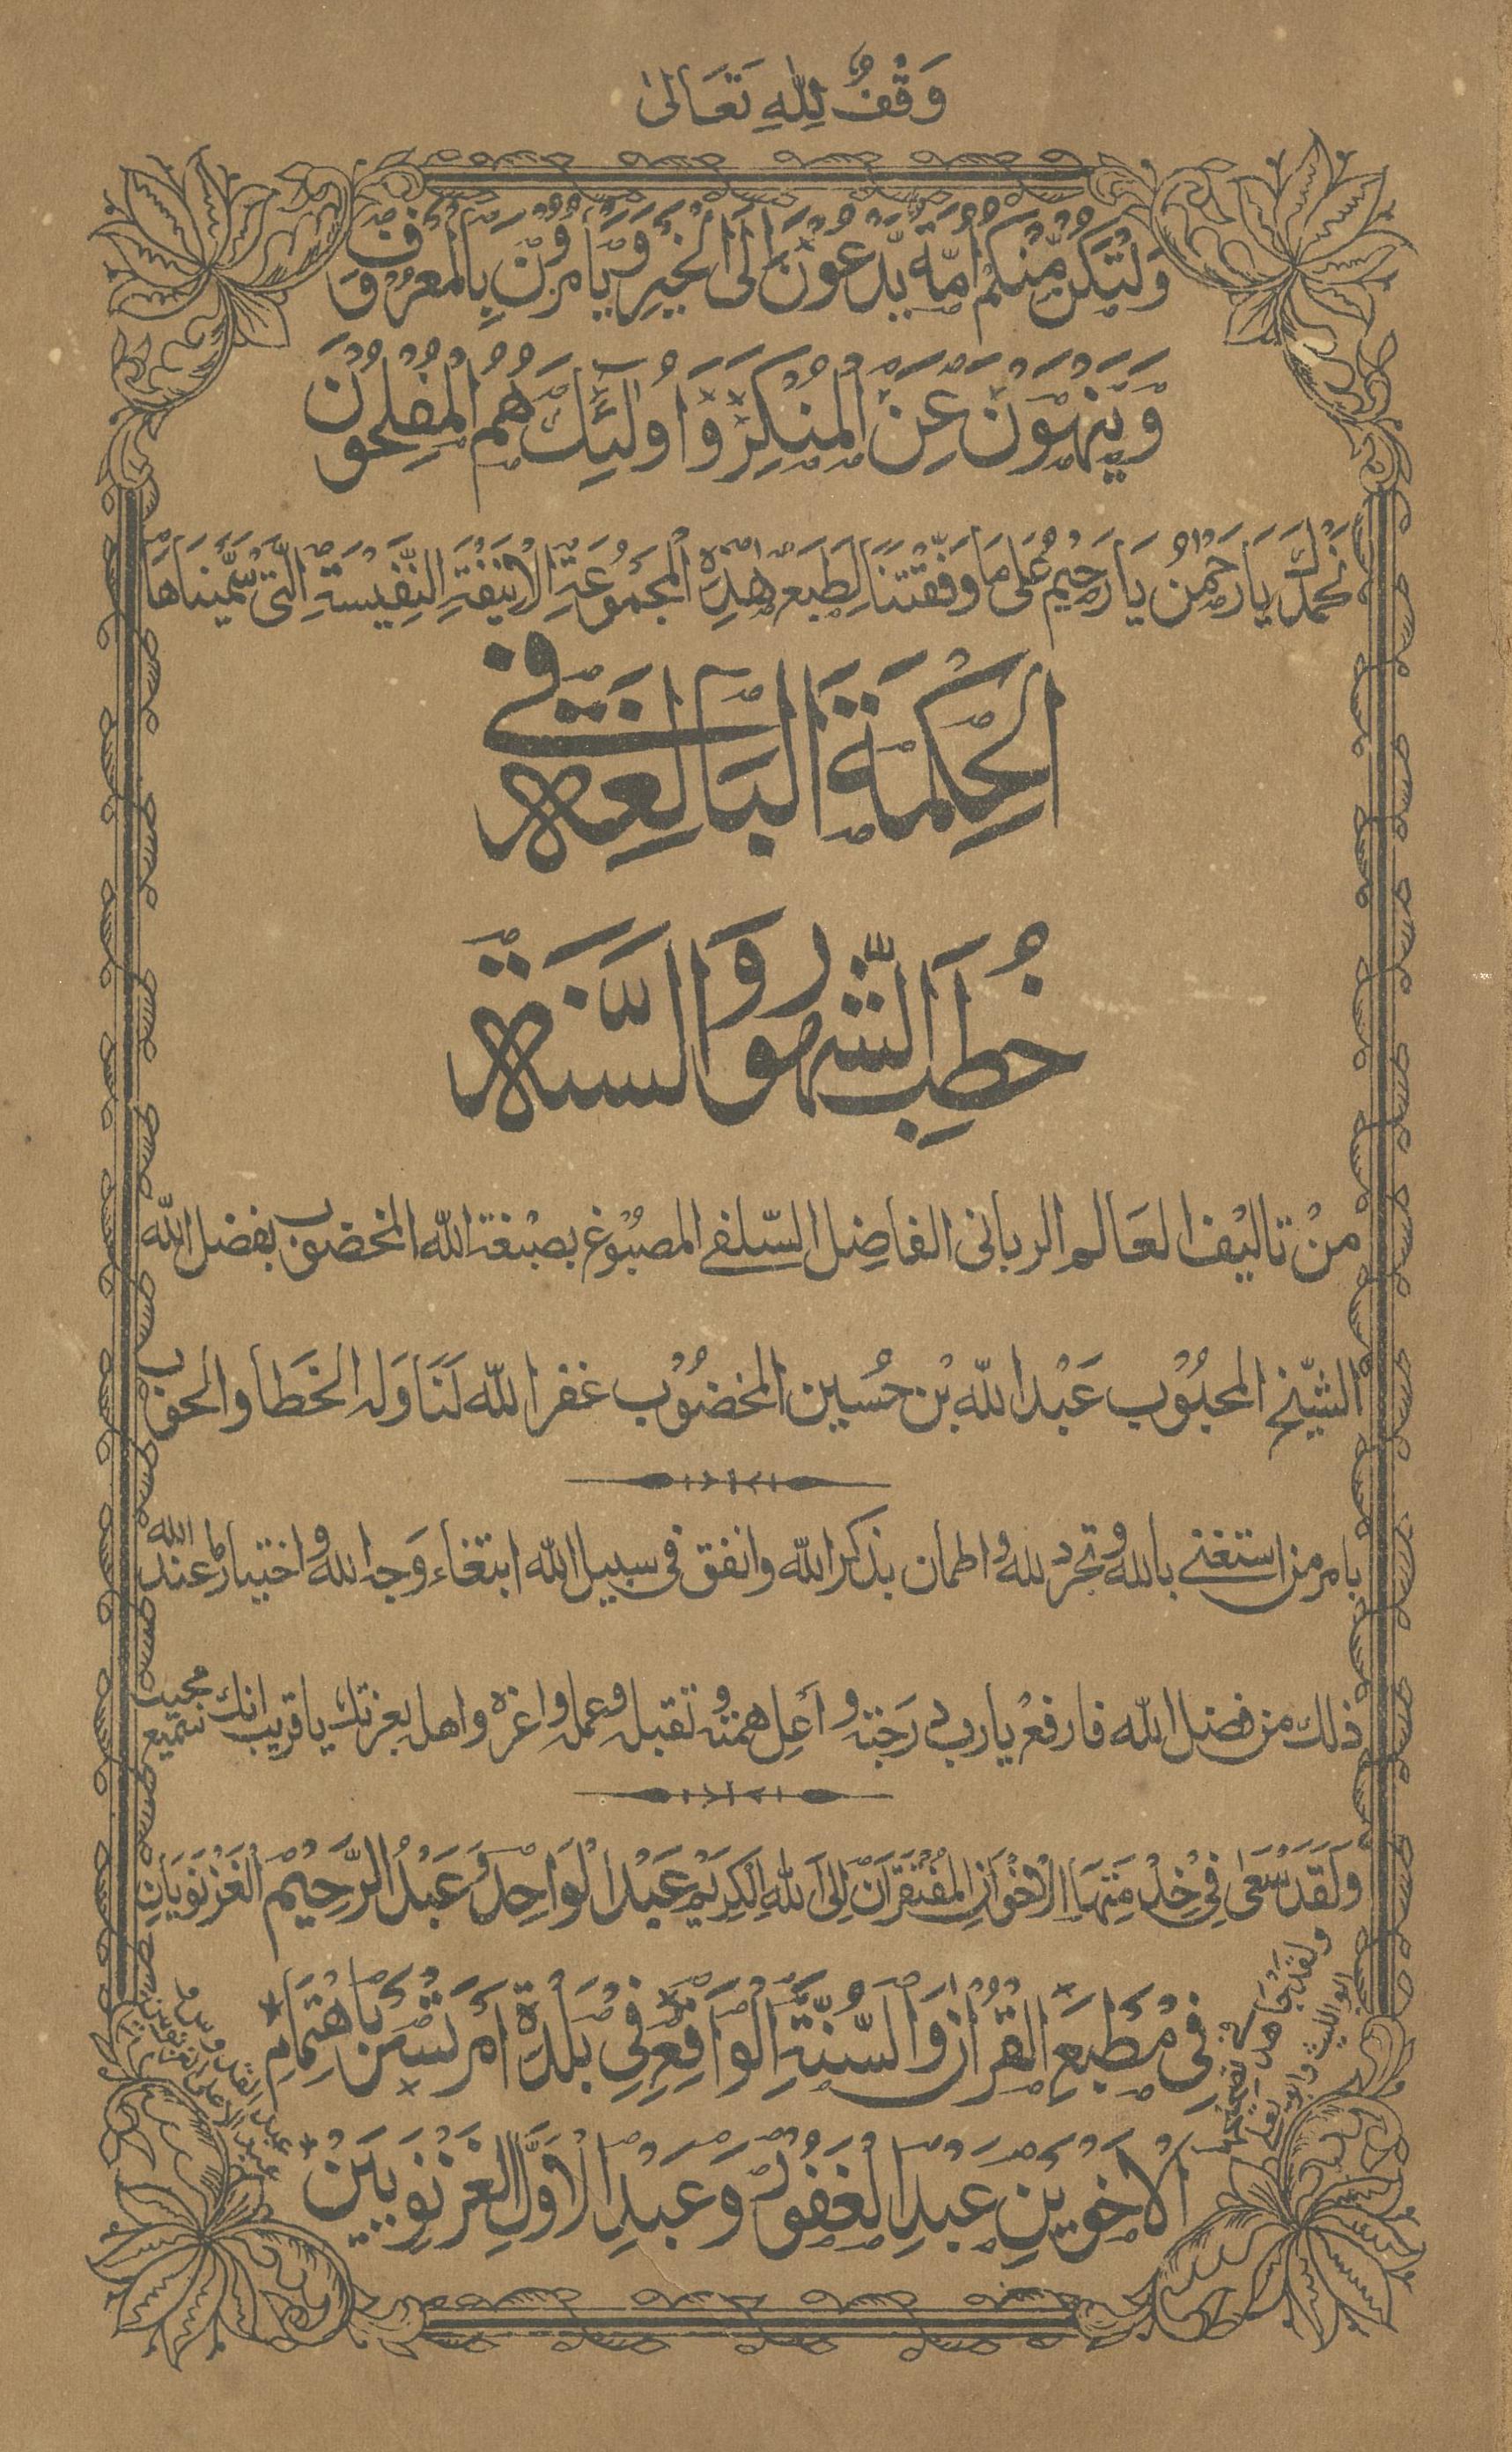 وَقْفٌ لِلّٰهِ تَعَالیٰ
وَلْتَكُنْ مِّنْكُمْ اُمَّةٌ يَّدْعُوْنَ اِلَى الْخَيْرِ وَيَاْمُرُوْنَ بِالْمَعْرُوْفِ
وَيَنْهَوْنَ عَنِ الْمُنْكَرِ وَاُولٰٓئِكَ هُمُ الْمُفْلِحُوْنَ
نَحْمَدُكَ يَا رَحْمٰنُ يَا رَحِيْمُ عَلٰى مَا وَفَّقْتَنَا لِطَبْعِ هٰذِهِ الْمَجْمُوْعَةِ الْاَنِيْقَةِ النَّفِيْسَةِ الَّتِىْ سَمَّيْنَاهَا
اَلْحِكْمَةَ الْبَالِغَةَ فِىْ
خُطَبِ الشُّهُوْرِ وَالسَّنَةِ
مِنْ تاليْف العَالم الربانى الفاضِل السّلفى المصبُوْغ بصبْغة الله المخضوب بفضل الله
الشيْخ المحبُوْب عَبْد الله بْن حُسين المخضُوْب غفر الله لَنَا وَلہ الخَطأ والحوب
بامر من استغنى بالله وتجرد لله واطمأن بذكر الله وانفق فى سبيل الله ابتغاء وَجہ الله واختيارًا عند الله
ذلك من فضل الله فارفعْ يارب دَرَجتہ وأعلِ همتہ وتقبل عملہ واغفرہ واهلہ بعزتك يا قريب انك سميع مجيب
وَلَقَدْ سَعٰى فِىْ خِدْمَتِهَا الْاَخَوَانِ الْمُفْتَقِرَانِ اِلَى اللهِ الْكَرِيْمِ عَبْدُ الْوَاحِدِ وَعَبْدُ الرَّحِيْمِ الْغَزْنَوِيَانِ
فِىْ مَطْبَعِ الْقُرْاٰنِ وَالسُّنَّةِ الْوَاقِعِ فِىْ بَلْدَةِ اَمْرَتْسَرَ بِاهْتِمَامِ
الْاَخَوَيْنِ عَبْدِ الْغَفُوْرِ وَعَبْدِ الْاَوَّلِ الْغَزْنَوِيَيْنِ